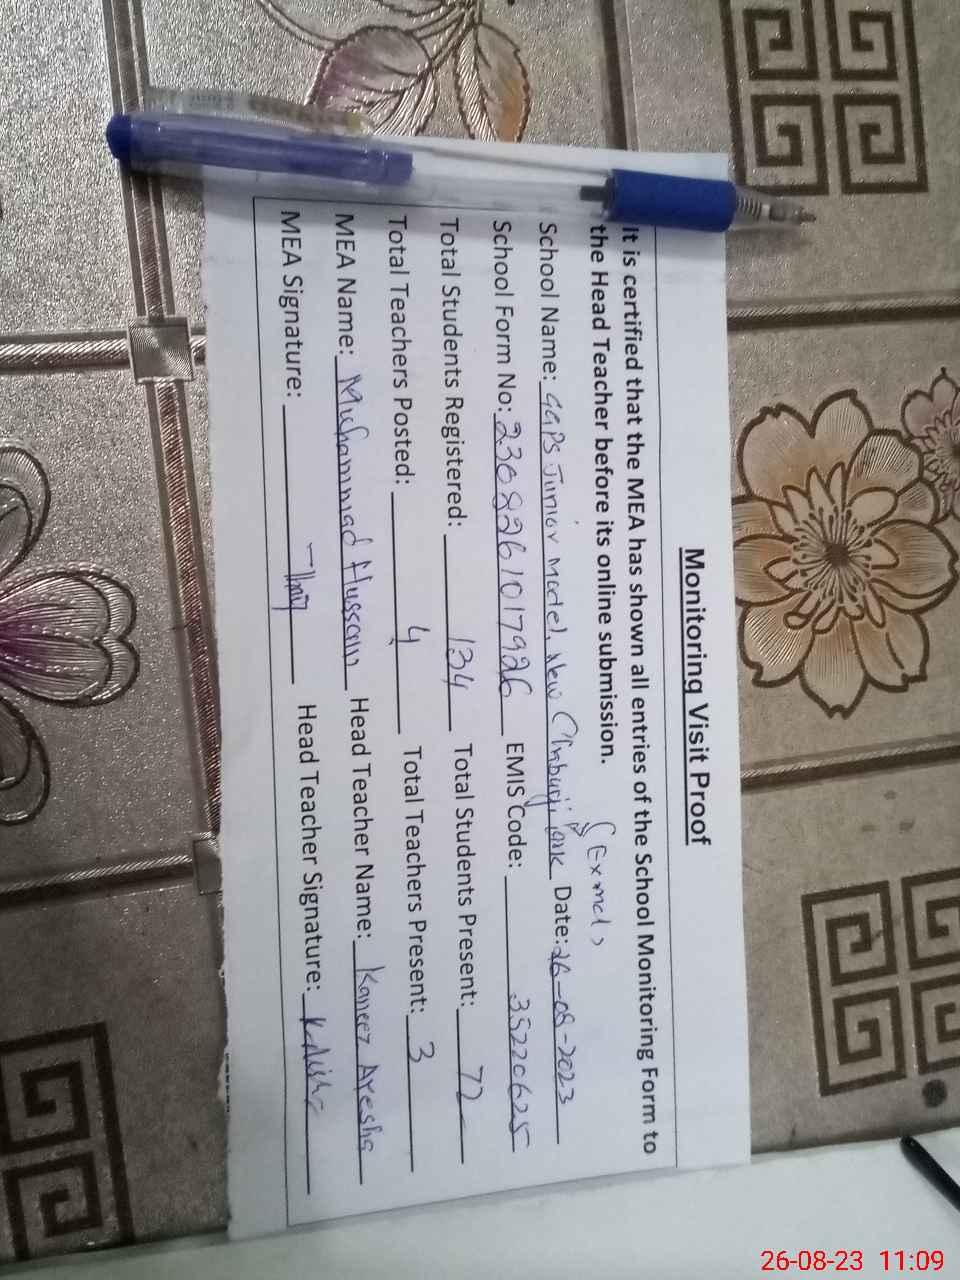 Monitoring Visit Proof
It is certified that the MEA has shown all entries of the School Monitoring Form to
the Head Teacher before its online submission.
(Exmcl)
School Name: GGPS Junior Model, New Date: 26-08-2023
School Form No: 2308261017926 EMIS Code: 35220625
Total Students Registered: 134 Total Students Present: 72
Total Teachers Posted: 4 Total Teachers Present: 3
MEA Name: Muhammad Hussain Head Teacher Name: Kaneez Ayesha
MEA Signature: Head Teacher Signature:
26-08-23 11:09